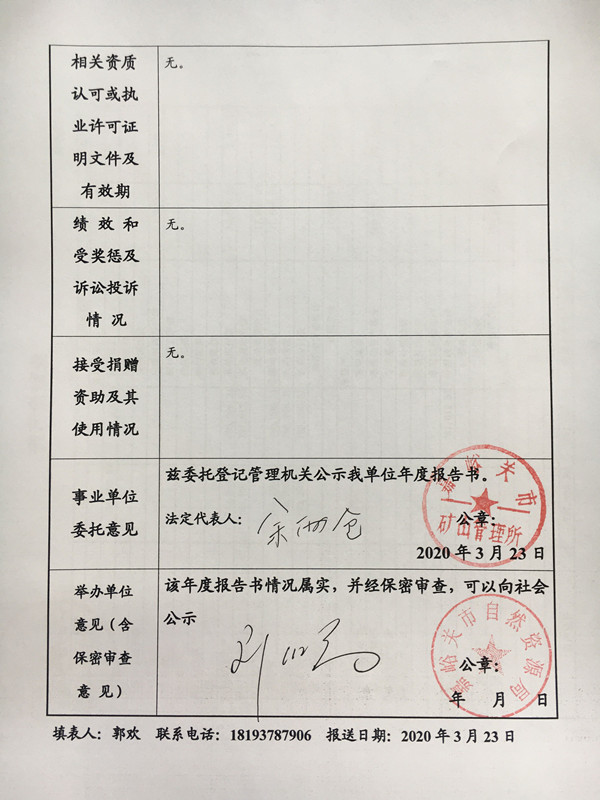 相关资质
认可或执
业许可证
明文件及
有效期
无。
绩 效 和
受奖惩及
诉讼投诉
情 况
无。
接受捐赠
资助及其
使用情况
无。
事业单位
委托意见
兹委托登记管理机关公示我单位年度报告书。
法定代表人：
公章：
2020 年 3 月 23 日
嘉峪关市
矿山管理所
举办单位
意见（含
保密审查
意 见）
该年度报告书情况属实，并经保密审查，可以向社会
公示
公章：
年 月 日
嘉峪关市自然资源局
填表人：郭欢 联系电话：18193787906 报送日期：2020 年 3 月 23 日